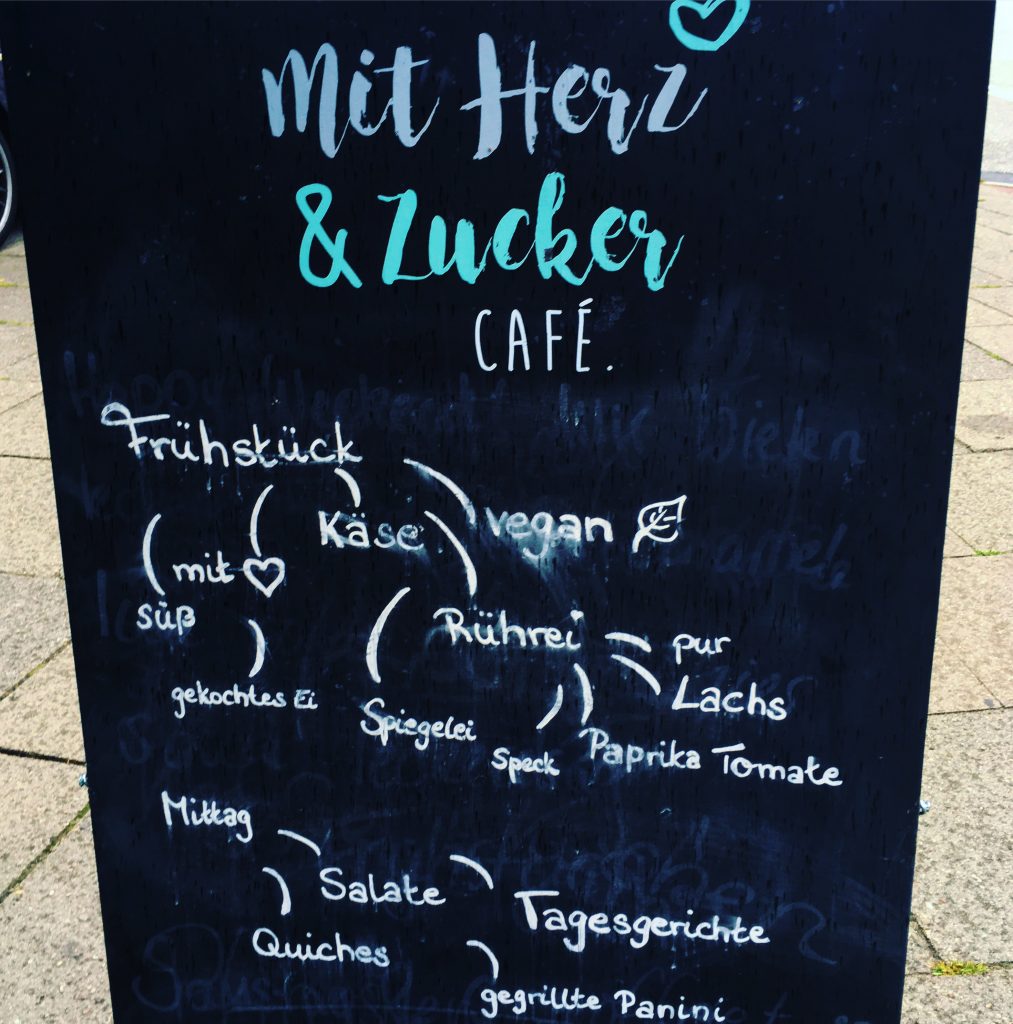 Mit Herz
& Zucker
CAFÉ.
Frühstück
Käse
vegan
mit
süß
Rührei
pur
gekochtes Ei
Lachs
Spiegelei
Speck
Paprika Tomate
Mittag
Salate
Tagesgerichte
Quiches
gegrillte Panini